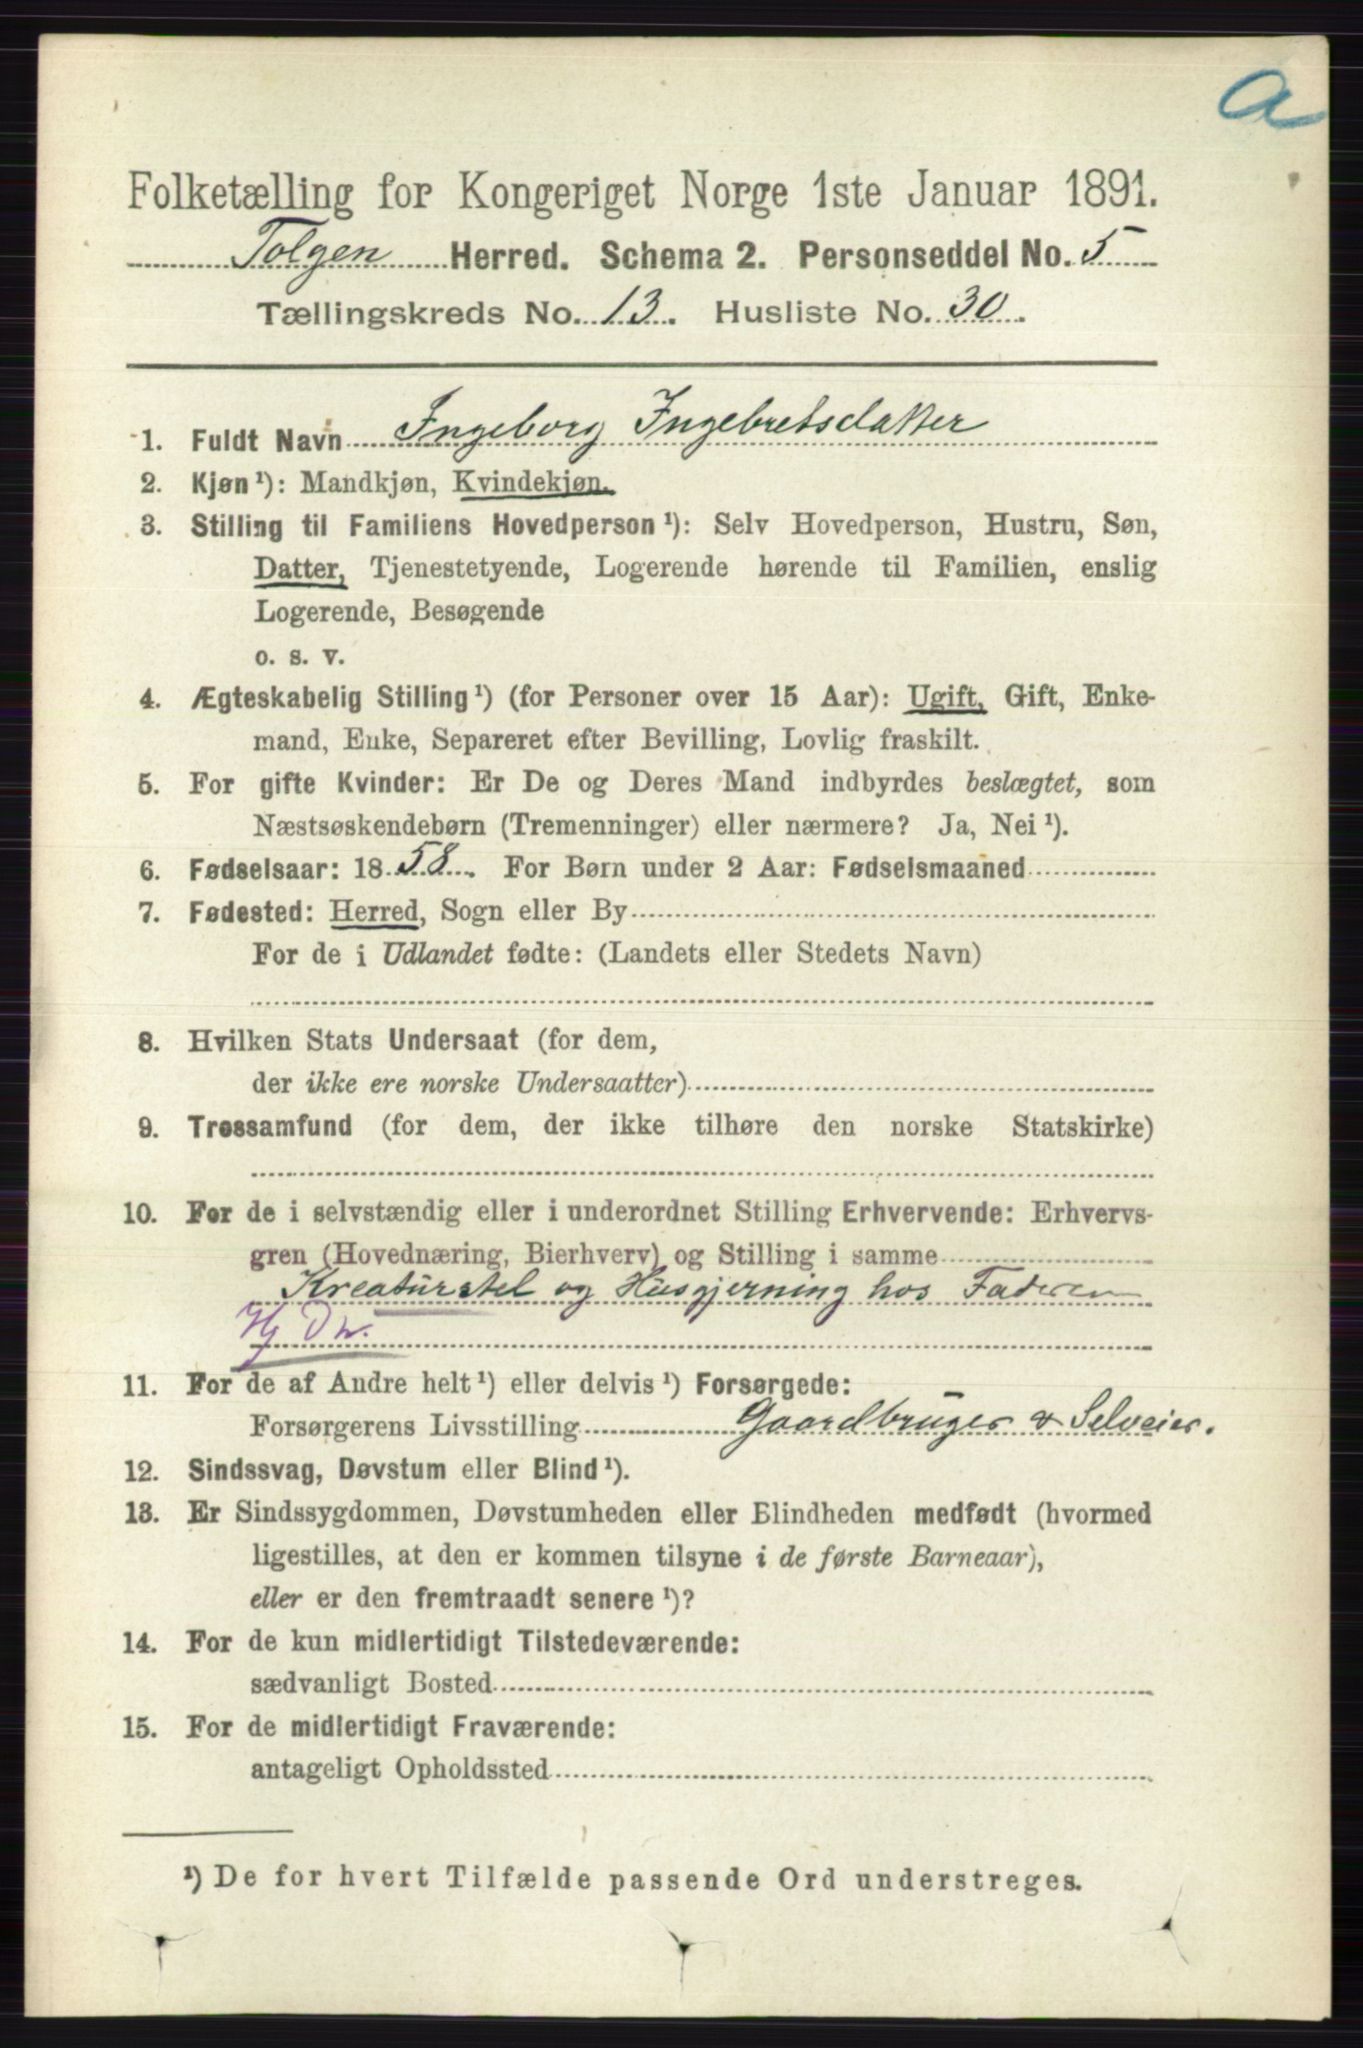 a
Folketælling for Kongeriget Norge 1ste Januar 1891.
Tolgen Herred. Schema 2. Personseddel No. 5
Tællingskreds No. 13. Husliste No. 30.
1. Fuldt Navn Ingeborg Ingebretsdatter
2. Kjøn¹): Mandkjøn, Kvindekjøn.
3. Stilling til Familiens Hovedperson¹): Selv Hovedperson, Hustru, Søn,
Datter, Tjenestetyende, Logerende hørende til Familien, enslig
Logerende, Besøgende
o. s. v.
4. Ægteskabelig Stilling¹) (for Personer over 15 Aar): Ugift, Gift, Enke-
mand, Enke, Separeret efter Bevilling, Lovlig fraskilt.
5. For gifte Kvinder: Er De og Deres Mand indbyrdes beslægtet, som
Næstsøskendebørn (Tremenninger) eller nærmere? Ja, Nei¹).
6. Fødselsaar: 1858. For Børn under 2 Aar: Fødselsmaaned
7. Fødested: Herred, Sogn eller By
For de i Udlandet fødte: (Landets eller Stedets Navn)
8. Hvilken Stats Undersaat (for dem,
der ikke ere norske Undersaatter)
9. Trossamfund (for dem, der ikke tilhøre den norske Statskirke)
10. For de i selvstændig eller i underordnet Stilling Erhvervende: Erhvervs-
gren (Hovednæring, Bierhverv) og Stilling i samme
Kreaturstel og Husgjerning hos Faderen
Hj Dtr.
11. For de af Andre helt¹) eller delvis¹) Forsørgede:
Forsørgerens Livsstilling Gaardbruger & Selveier.
12. Sindssvag, Døvstum eller Blind¹).
13. Er Sindssygdommen, Døvstumheden eller Blindheden medfødt (hvormed
ligestilles, at den er kommen tilsyne i de første Barneaar),
eller er den fremtraadt senere¹)?
14. For de kun midlertidigt Tilstedeværende:
sædvanligt Bosted
15. For de midlertidigt Fraværende:
antageligt Opholdssted
¹) De for hvert Tilfælde passende Ord understreges.